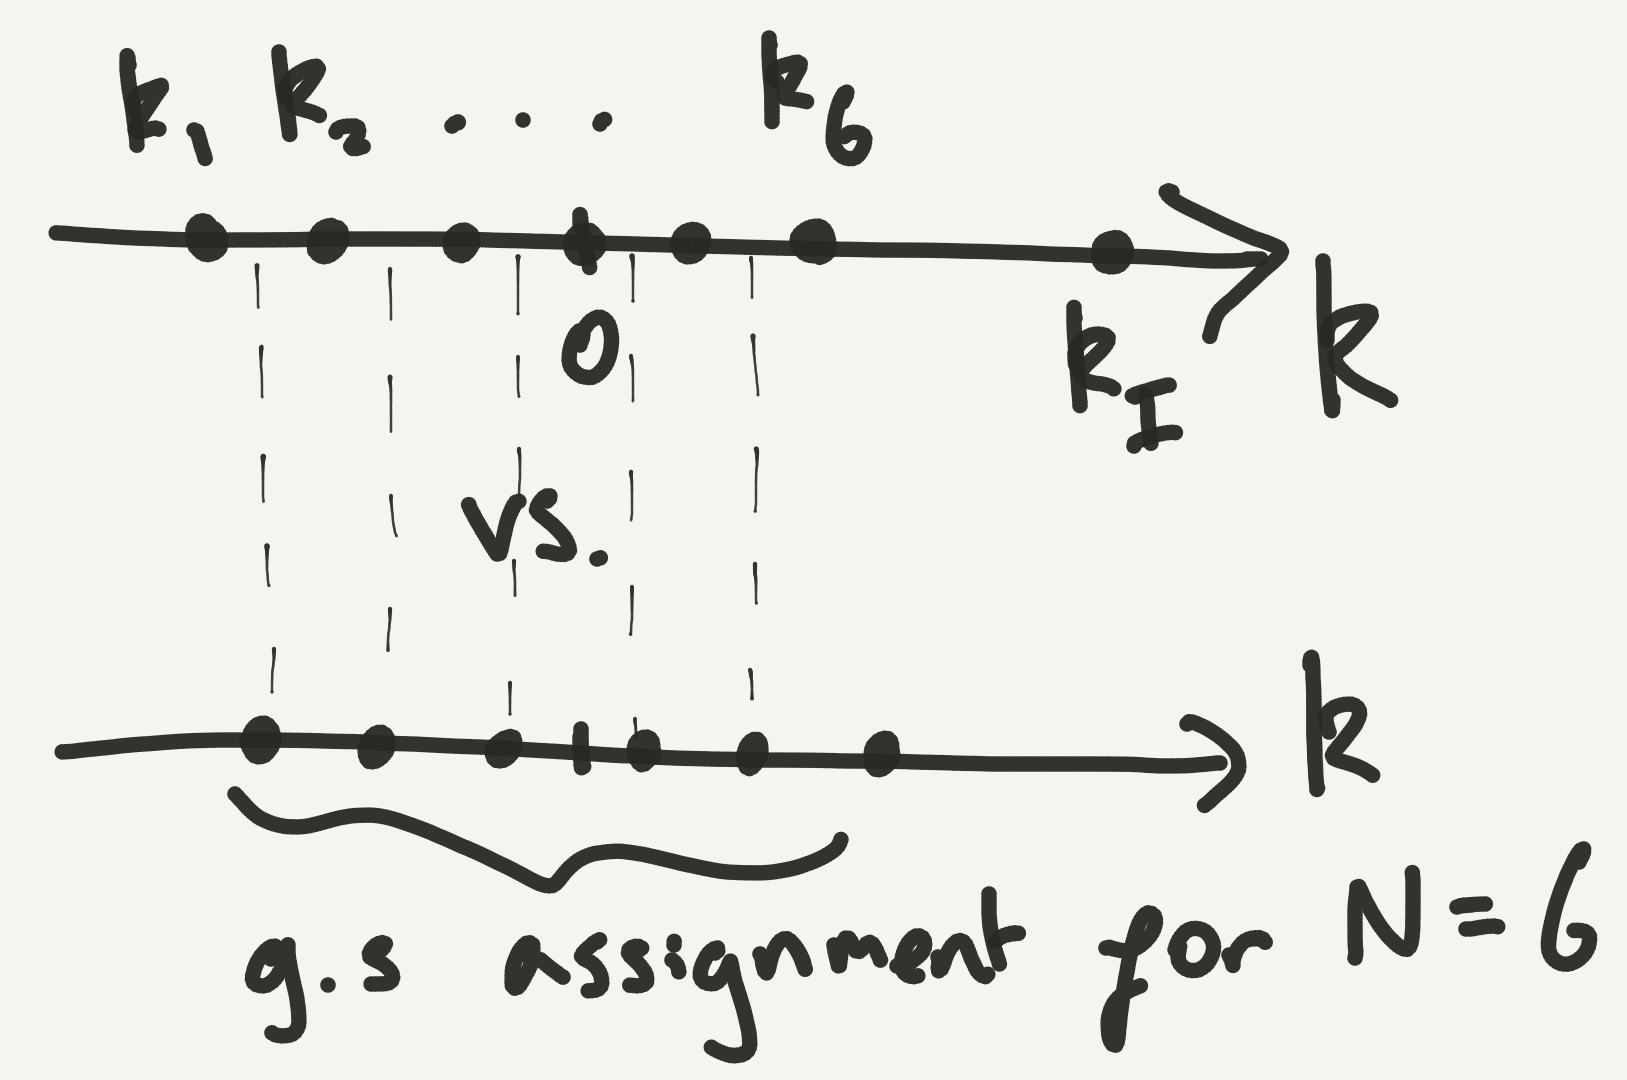 k₁ k₂ . . . k₆
0
k_I
k
vs.
k
g.s assignment for N = 6